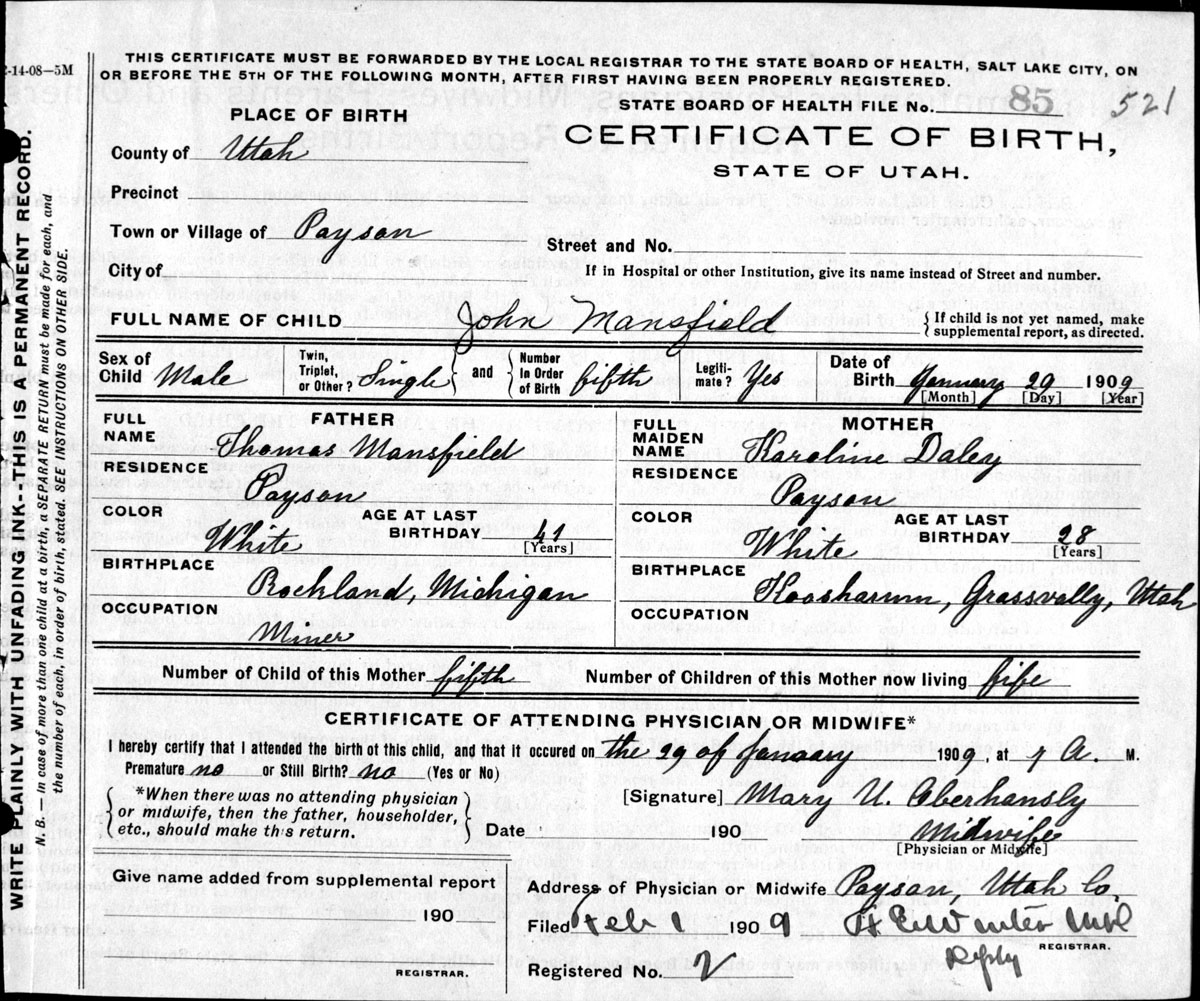 2-14-08—5M
THIS CERTIFICATE MUST BE FORWARDED BY THE LOCAL REGISTRAR TO THE STATE BOARD OF HEALTH, SALT LAKE CITY, ON
OR BEFORE THE 5TH OF THE FOLLOWING MONTH, AFTER FIRST HAVING BEEN PROPERLY REGISTERED.
STATE BOARD OF HEALTH FILE No. 85 521
PLACE OF BIRTH
CERTIFICATE OF BIRTH,
STATE OF UTAH.
County of Utah
Precinct
Town or Village of Payson
Street and No.
City of
If in Hospital or other Institution, give its name instead of Street and number.
FULL NAME OF CHILD John Mansfield
{If child is not yet named, make
supplemental report, as directed.
Sex of Child Male
Twin, Triplet, or Other? Single
and
Number In Order of Birth fifth
Legiti-mate? Yes
Date of Birth January 29 1909
[Month] [Day] [Year]
FATHER
FULL NAME Thomas Mansfield
RESIDENCE Payson
COLOR White
AGE AT LAST BIRTHDAY 41 [Years]
BIRTHPLACE Rockland, Michigan
OCCUPATION Miner
MOTHER
FULL MAIDEN NAME Karoline Daley
RESIDENCE Payson
COLOR White
AGE AT LAST BIRTHDAY 28 [Years]
BIRTHPLACE Koosharum, Grassvally, Utah
OCCUPATION
Number of Child of this Mother fifth Number of Children of this Mother now living fife
CERTIFICATE OF ATTENDING PHYSICIAN OR MIDWIFE*
I hereby certify that I attended the birth of this child, and that it occured on the 29 of January 1909, at 7 A. M.
Premature no or Still Birth? no (Yes or No)
*When there was no attending physician
or midwife, then the father, householder,
etc., should make this return.
[Signature] Mary U. Oberhansly
Date 190 Midwife
[Physician or Midwife]
Give name added from supplemental report
190
REGISTRAR.
Address of Physician or Midwife Payson, Utah Co.
Filed Feb 1 1909 H E Winter
REGISTRAR.
Registered No. 2
WRITE PLAINLY WITH UNFADING INK--THIS IS A PERMANENT RECORD.
N.B.—In case of more than one child at a birth, a SEPARATE RETURN must be made for each, and
the number of each, in order of birth, stated. SEE INSTRUCTIONS ON OTHER SIDE.